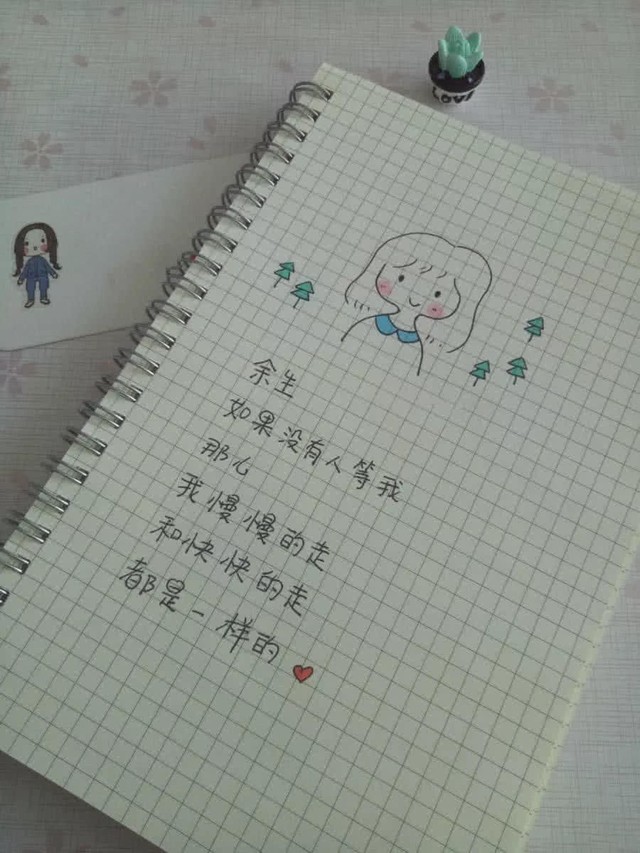 余生
如果没有人等我
那么
我慢慢的走
和快快的走
都是一样的